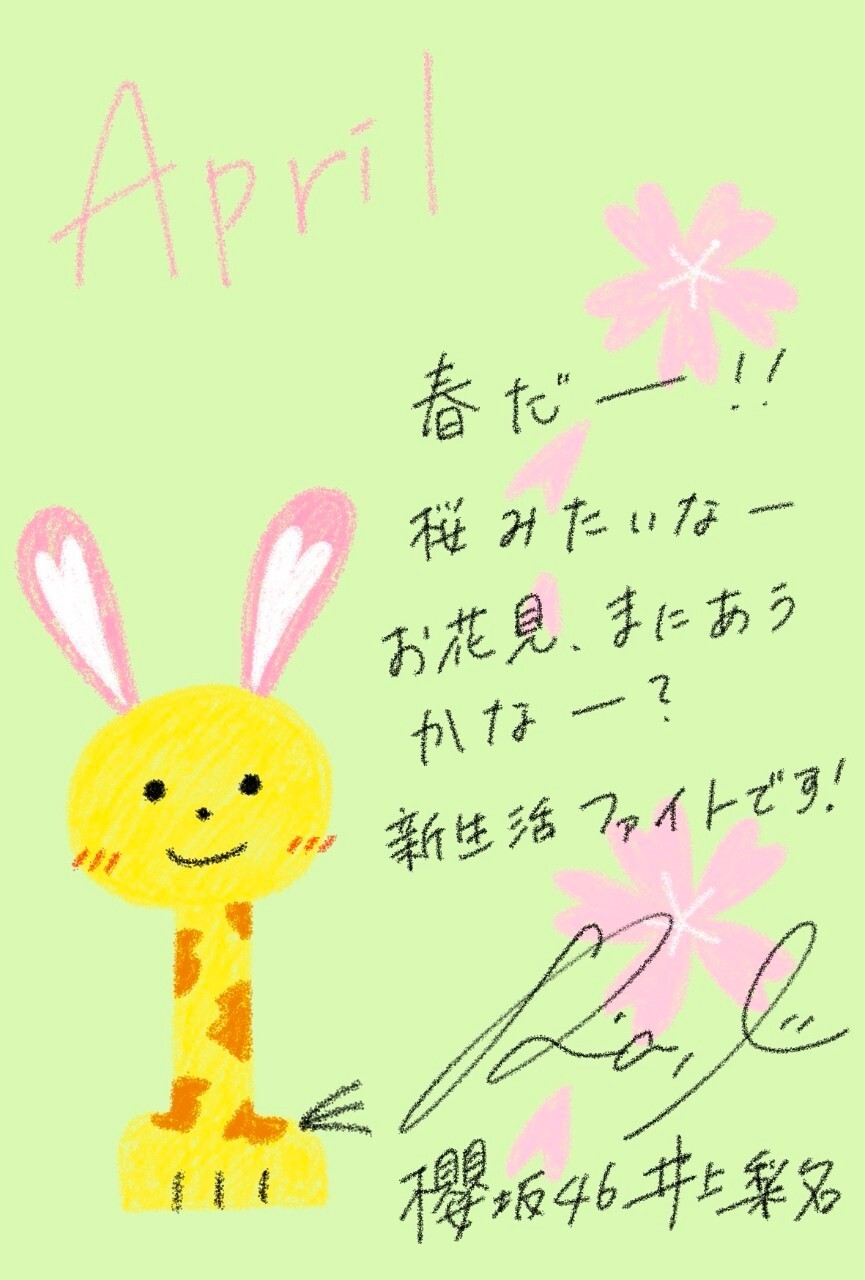 April
春だー!!
桜みたいなー
お花見、まにあう
かなー?
新生活ファイトです!
櫻坂46井上梨名